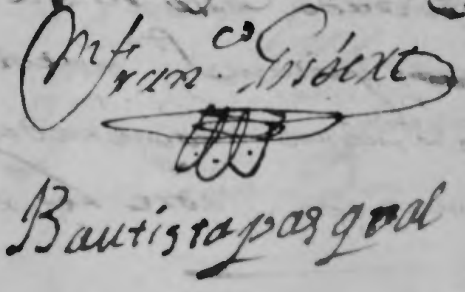 M Fran.co Gisbert
Bautista pasqual